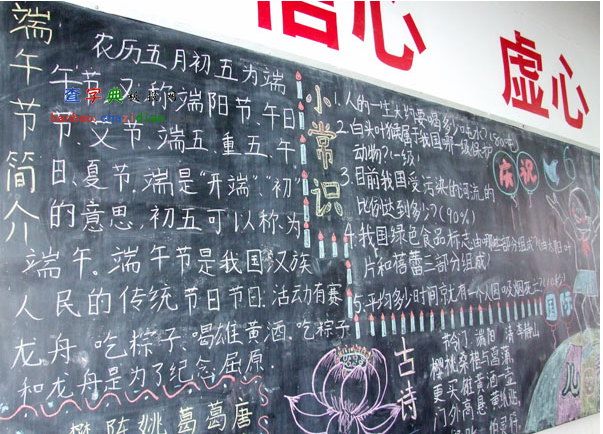 信心
虚心
端午节简介
农历五月初五为端
午节,又称端阳节、午日
节、艾节、端五、重五、午
日、夏节,端是"开端""初"
的意思,初五可以称为
端午。端午节是我国汉族
人民的传统节日节日:活动有赛
龙舟,吃粽子,喝雄黄酒,吃粽子
和龙舟是为了纪念屈原.
樊 陈 姚 葛 葛 唐
查字典板报网
小常识
1.人的一生大约要喝多少吨水?(80吨)
2.白头叶猴属于我国哪一级保护
动物?(一级)
3.目前我国受污染的河流的
比例达到多少?(90%)
4.我国绿色食品标志由哪些部分组成?
片和蓓蕾三部分组成)
5.平均多少时间就有一个人因吸烟死亡?
庆祝
六
国际
儿
古诗
节令门·端阳 清 李静山
樱桃桑椹与菖蒲,
更买雄黄酒一壶
门外高悬黄纸贴,